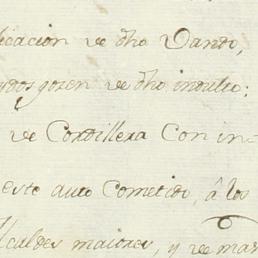 licacion de dho Vando,
dos gozen de dho indulto;
de Cordillera Con in
este auto Cometido, â los
Alcaldes maiores, y de man